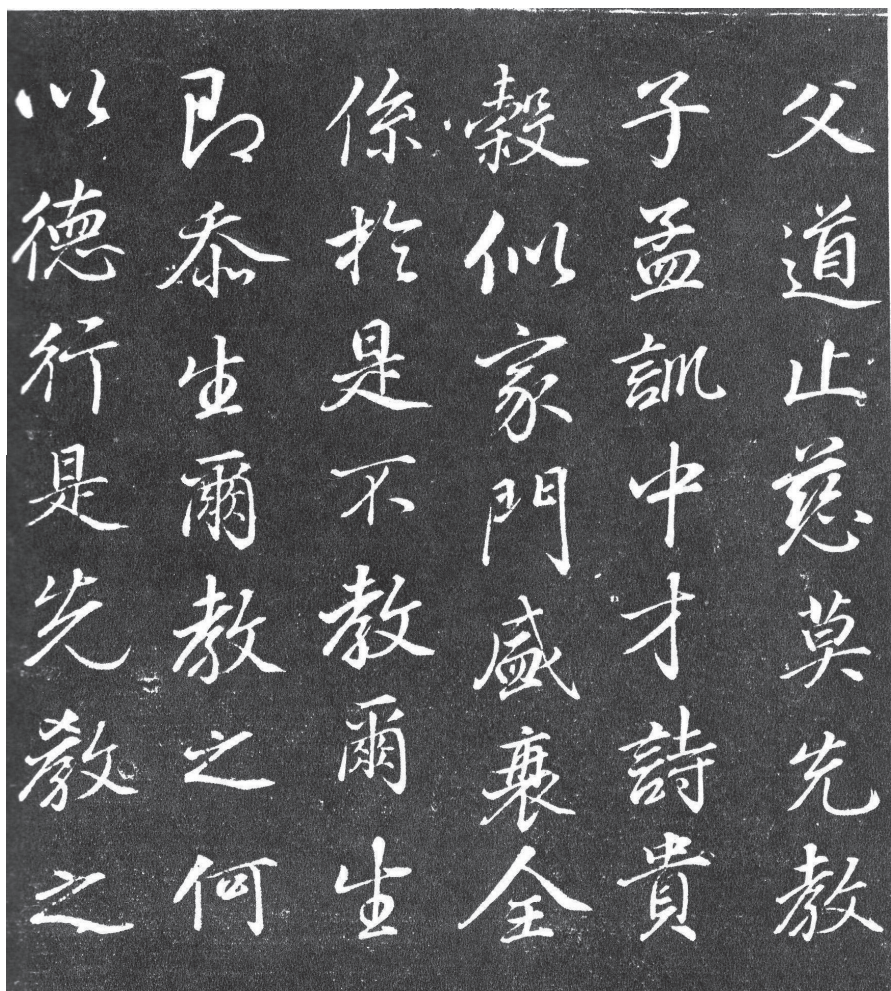 父道止慈莫先教
子孟訓中才詩貴
穀似家門盛衰全
係於是不教爾生
即忝生爾教之何
以德行是先教之